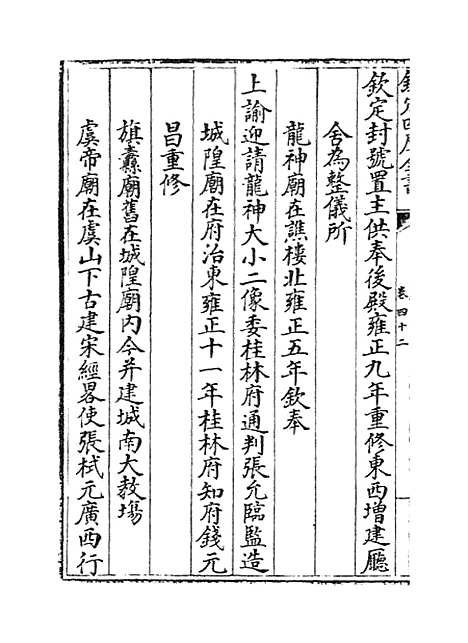 欽定四庫全書
卷四十二
欽定封號置主供奉後殿雍正九年重修東西增建廳
舍為整儀所
龍神廟在譙樓北雍正五年欽奉
上諭迎請龍神大小二像委桂林府通判張允臨監造
城隍廟在府治東雍正十一年桂林府知府錢元
昌重修
旗纛廟舊在城隍廟內今并建城南大教場
虞帝廟在虞山下古建宋經畧使張栻元廣西行